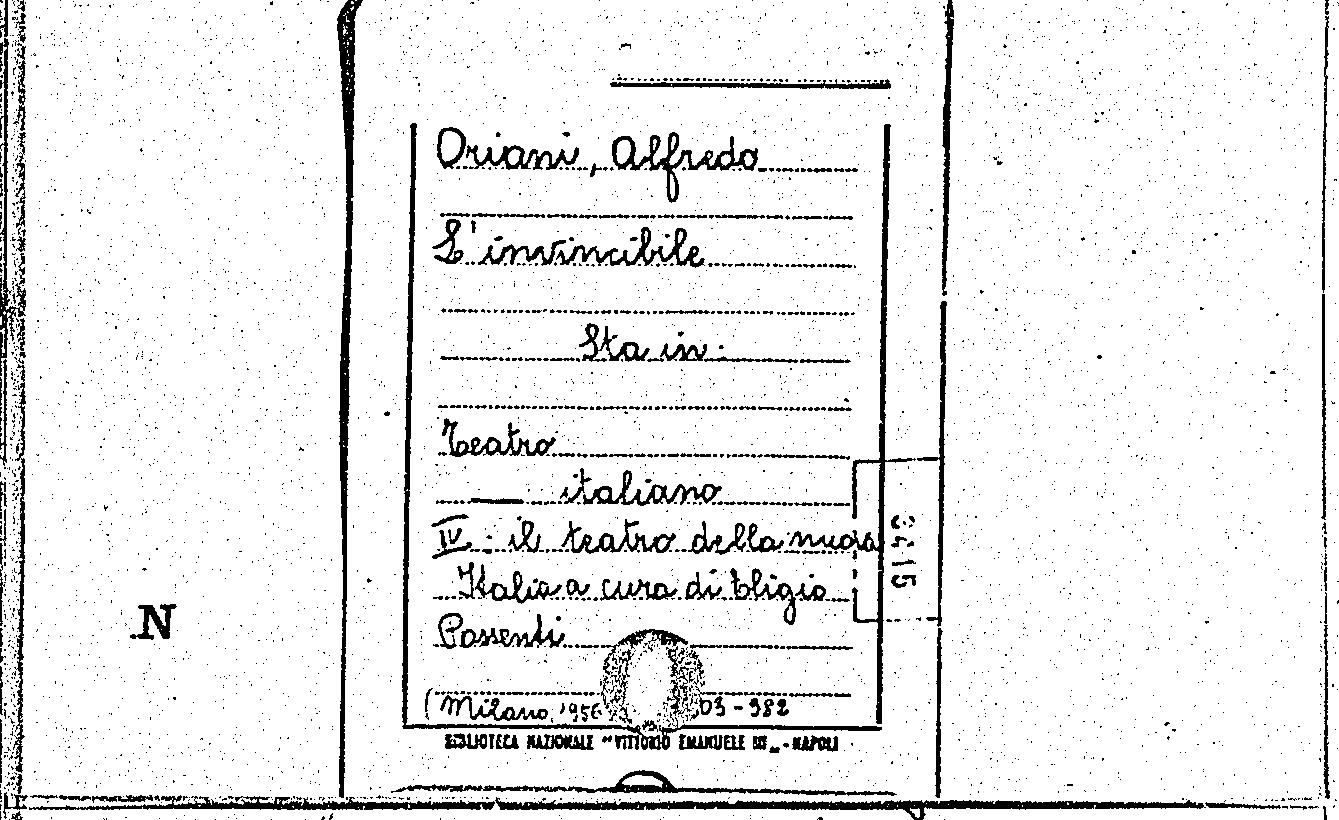 Oriani, Alfredo
L'invincibile
Sta in:
Teatro
— italiano
IV: il teatro della nuova
Italia a cura di Eligio
Possenti
(Milano, 1956 03-382
BIBLIOTECA NAZIONALE "VITTORIO EMANUELE III" - NAPOLI
3415
N